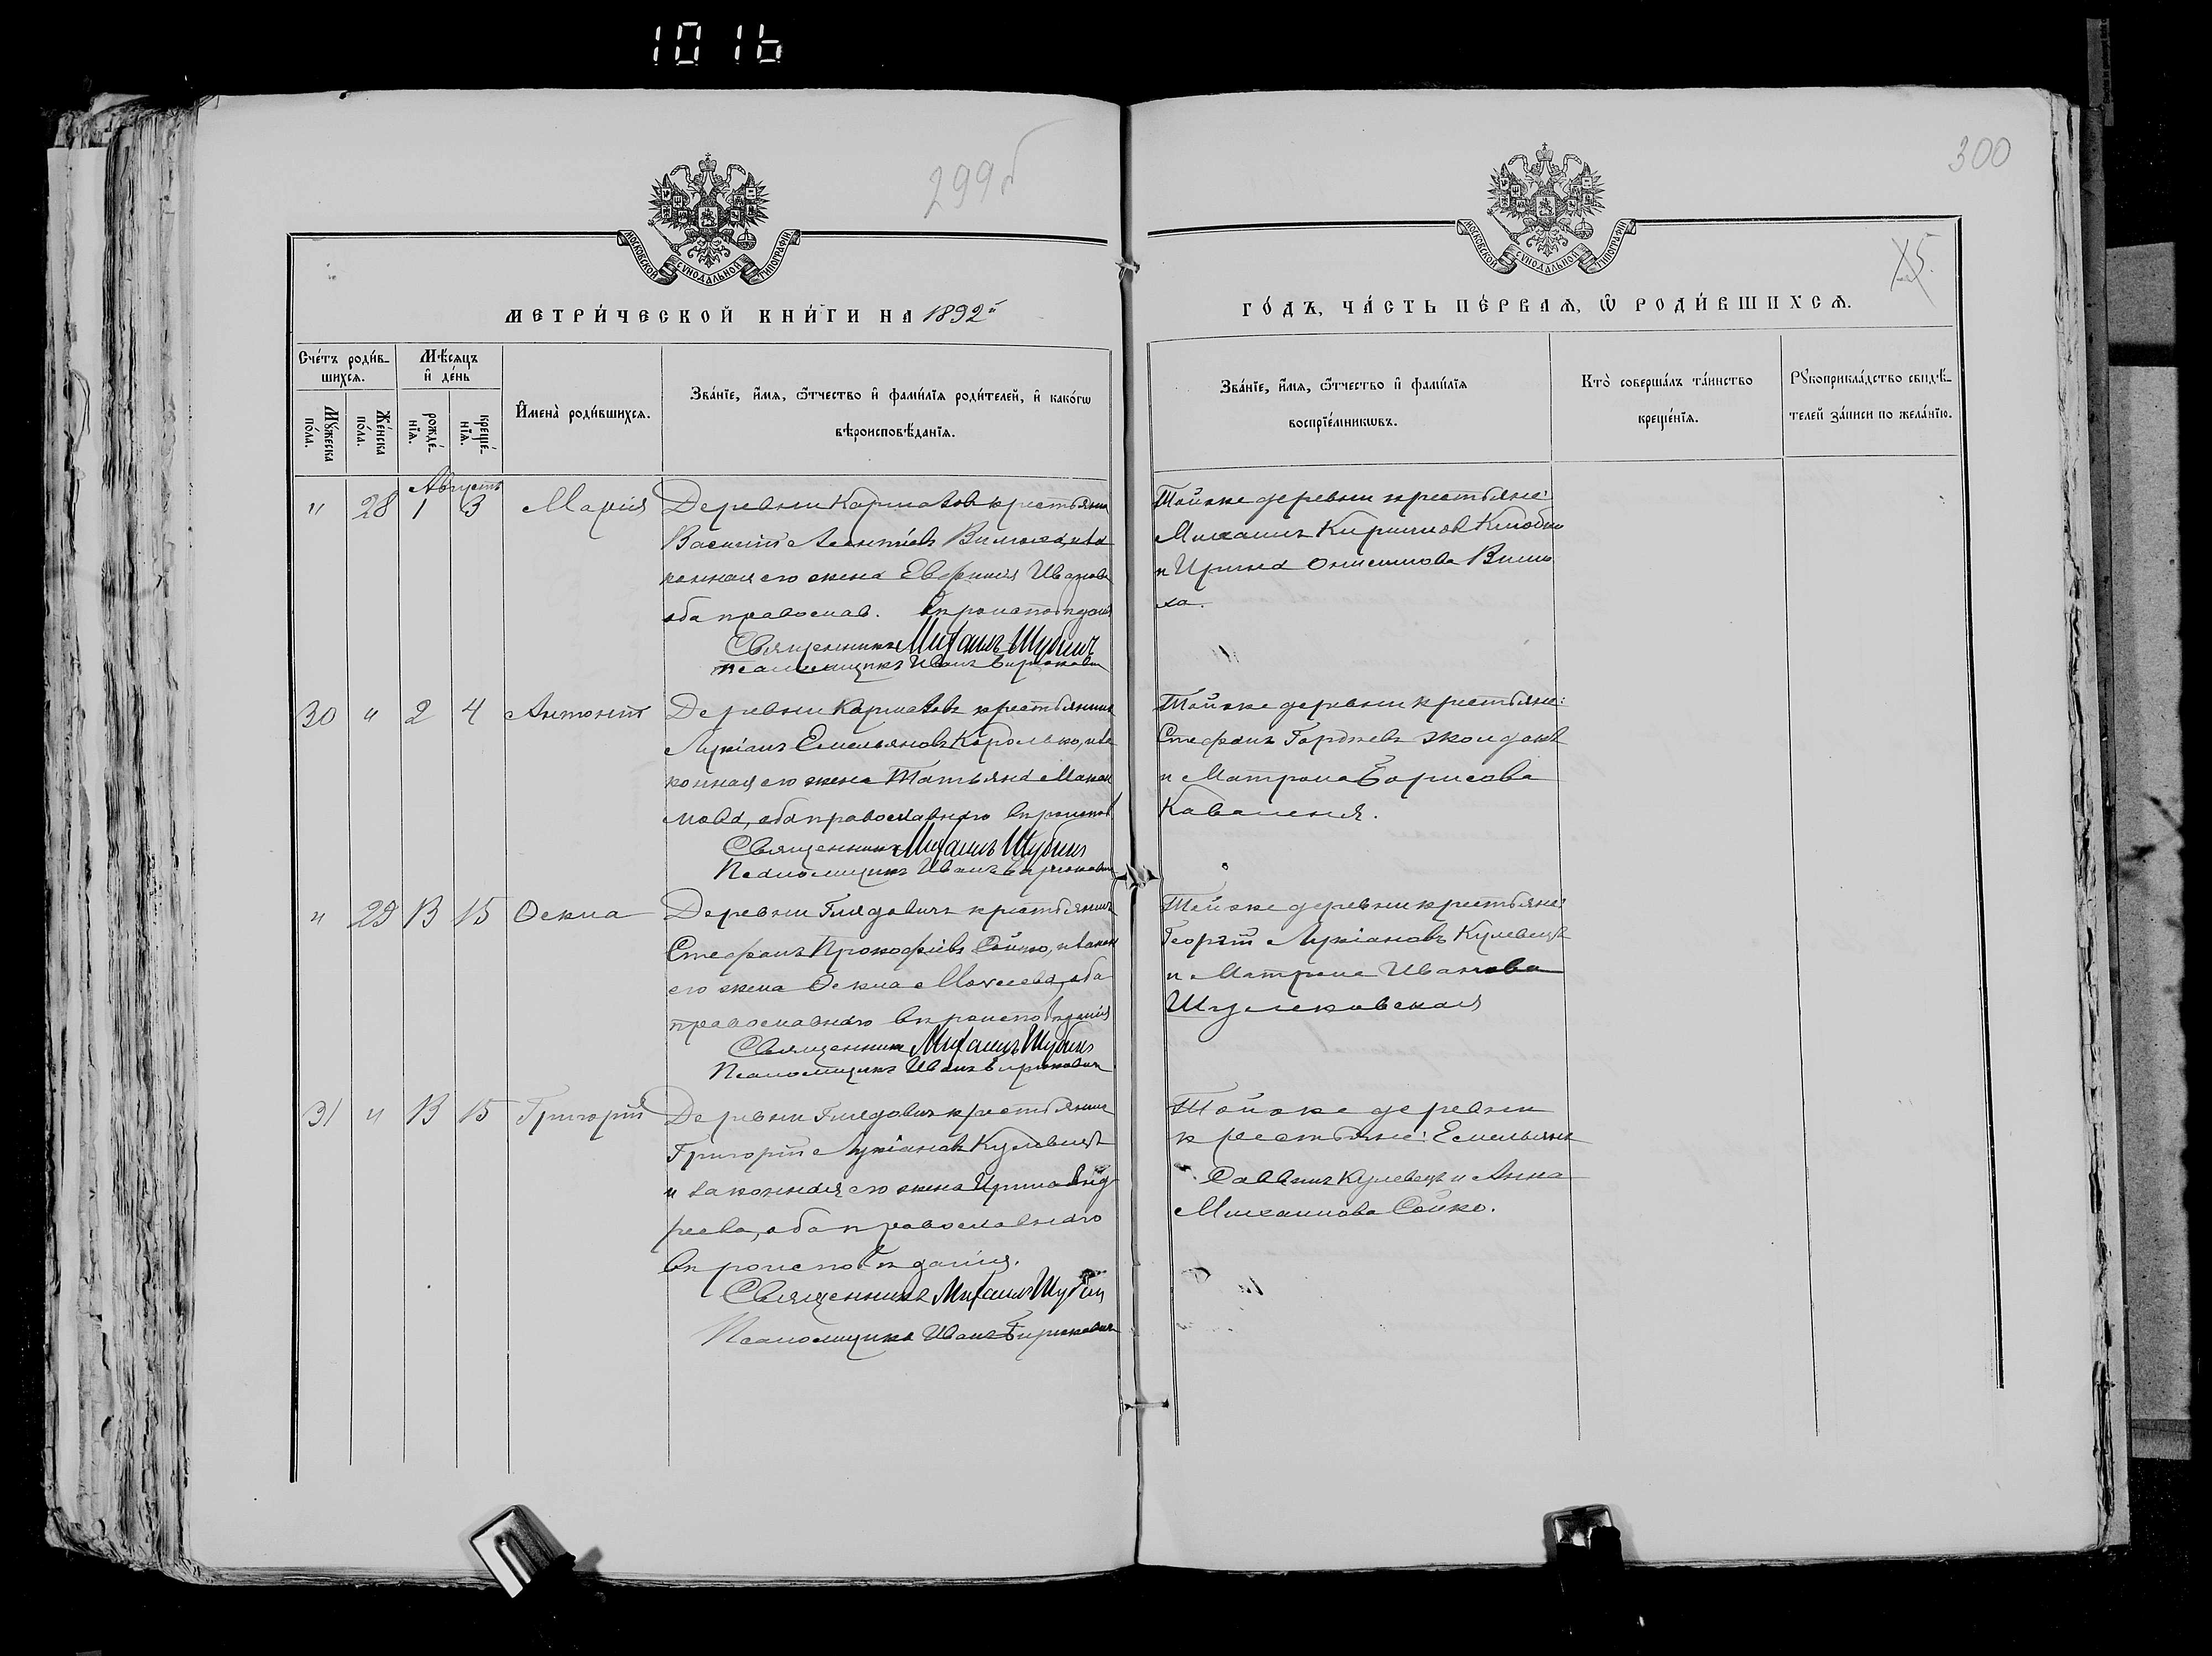 1016
299б
300
МОСКОВСКОЙ СѴНОДАЛЬНОЙ ТИПОГРАФІИ
МОСКОВСКОЙ СѴНОДАЛЬНОЙ ТИПОГРАФІИ
МЕТРИ́ЧЕСКОЙ КНИ́ГИ НА 1892й
ГО́ДЪ, ЧА́СТЬ ПЕ́РВАѦ, Ѿ РОДИ́ВШИХСѦ.
Сче́тъ роди́в-
шихсѧ.
Мѣ́сяцъ
и҆ де́нь
Мꙋ́жеска
по́ла.
Же́нска
по́ла.
рожде́-
нїѧ.
креще́-
нїѧ.
И҆мена̀ роди́вшихсѧ.
Зва́нїе, и҆́мѧ, ѻ҆́тчество и҆ фами́лїѧ роди́телей, и҆ како́гѡ
вѣроисповѣ́данїѧ.
Зва́нїе, и҆́мѧ, ѻ҆́тчество и҆ фами́лїѧ
воспрїе́мникѡвъ.
Кто̀ соверша́лъ та́инство
креще́нїѧ.
Рꙋкоприкла́дство свидѣ́-
телей за́писи по жела́нїю.
Августъ
" 28 1 3 Марія
Деревни
Василій Леонтіевъ
конная его жена Евфимія Иванова
оба православ. вѣроисповѣданія
Священникъ Михаилъ Шубинъ
Псаломщикъ Иванъ Бирюковичъ
Тойже деревни крестьяне:
Михаилъ Кирилловъ
и Ирина Онисимова Вили
ха.
30 " 2 4 Антоній
Деревни крестьянинъ
Лукіанъ Емельяновъ Королько, и за
конная его жена Татьяна
мова, оба православнаго вѣроисповѣд
Священникъ Михаилъ Шубинъ
Псаломщикъ Иванъ Бирюковичъ
Тойже деревни крестьяне:
Стефанъ Гордѣевъ
и Матрона Борисова
Каваленя.
" 29 13 15 Ѳекла
Деревни Глядовичъ крестьянинъ
Стефанъ Прокофіевъ Сойко, и закон
его жена Ѳекла Моисеева, оба
православнаго вѣроисповѣданія
Священникъ Михаилъ Шубинъ
Псаломщикъ Иванъ Бирюковичъ
Тойже деревни крестьяне:
Георгій Лукіановъ Кулевецъ
и Матрона Иванова
31 " 13 15 Григорій
Деревни Глядовичъ крестьянинъ
Григорій Лукіановъ Кулевецъ
и законная его жена Ирина Анд
реева, оба православнаго
вѣроисповѣданія.
Священникъ Михаилъ Шубинъ
Псаломщикъ Иванъ Бирюковичъ
Тойже деревни
крестьяне: Емельянъ
Саввинъ Кулевецъ и Анна
Михаилова Сойко.